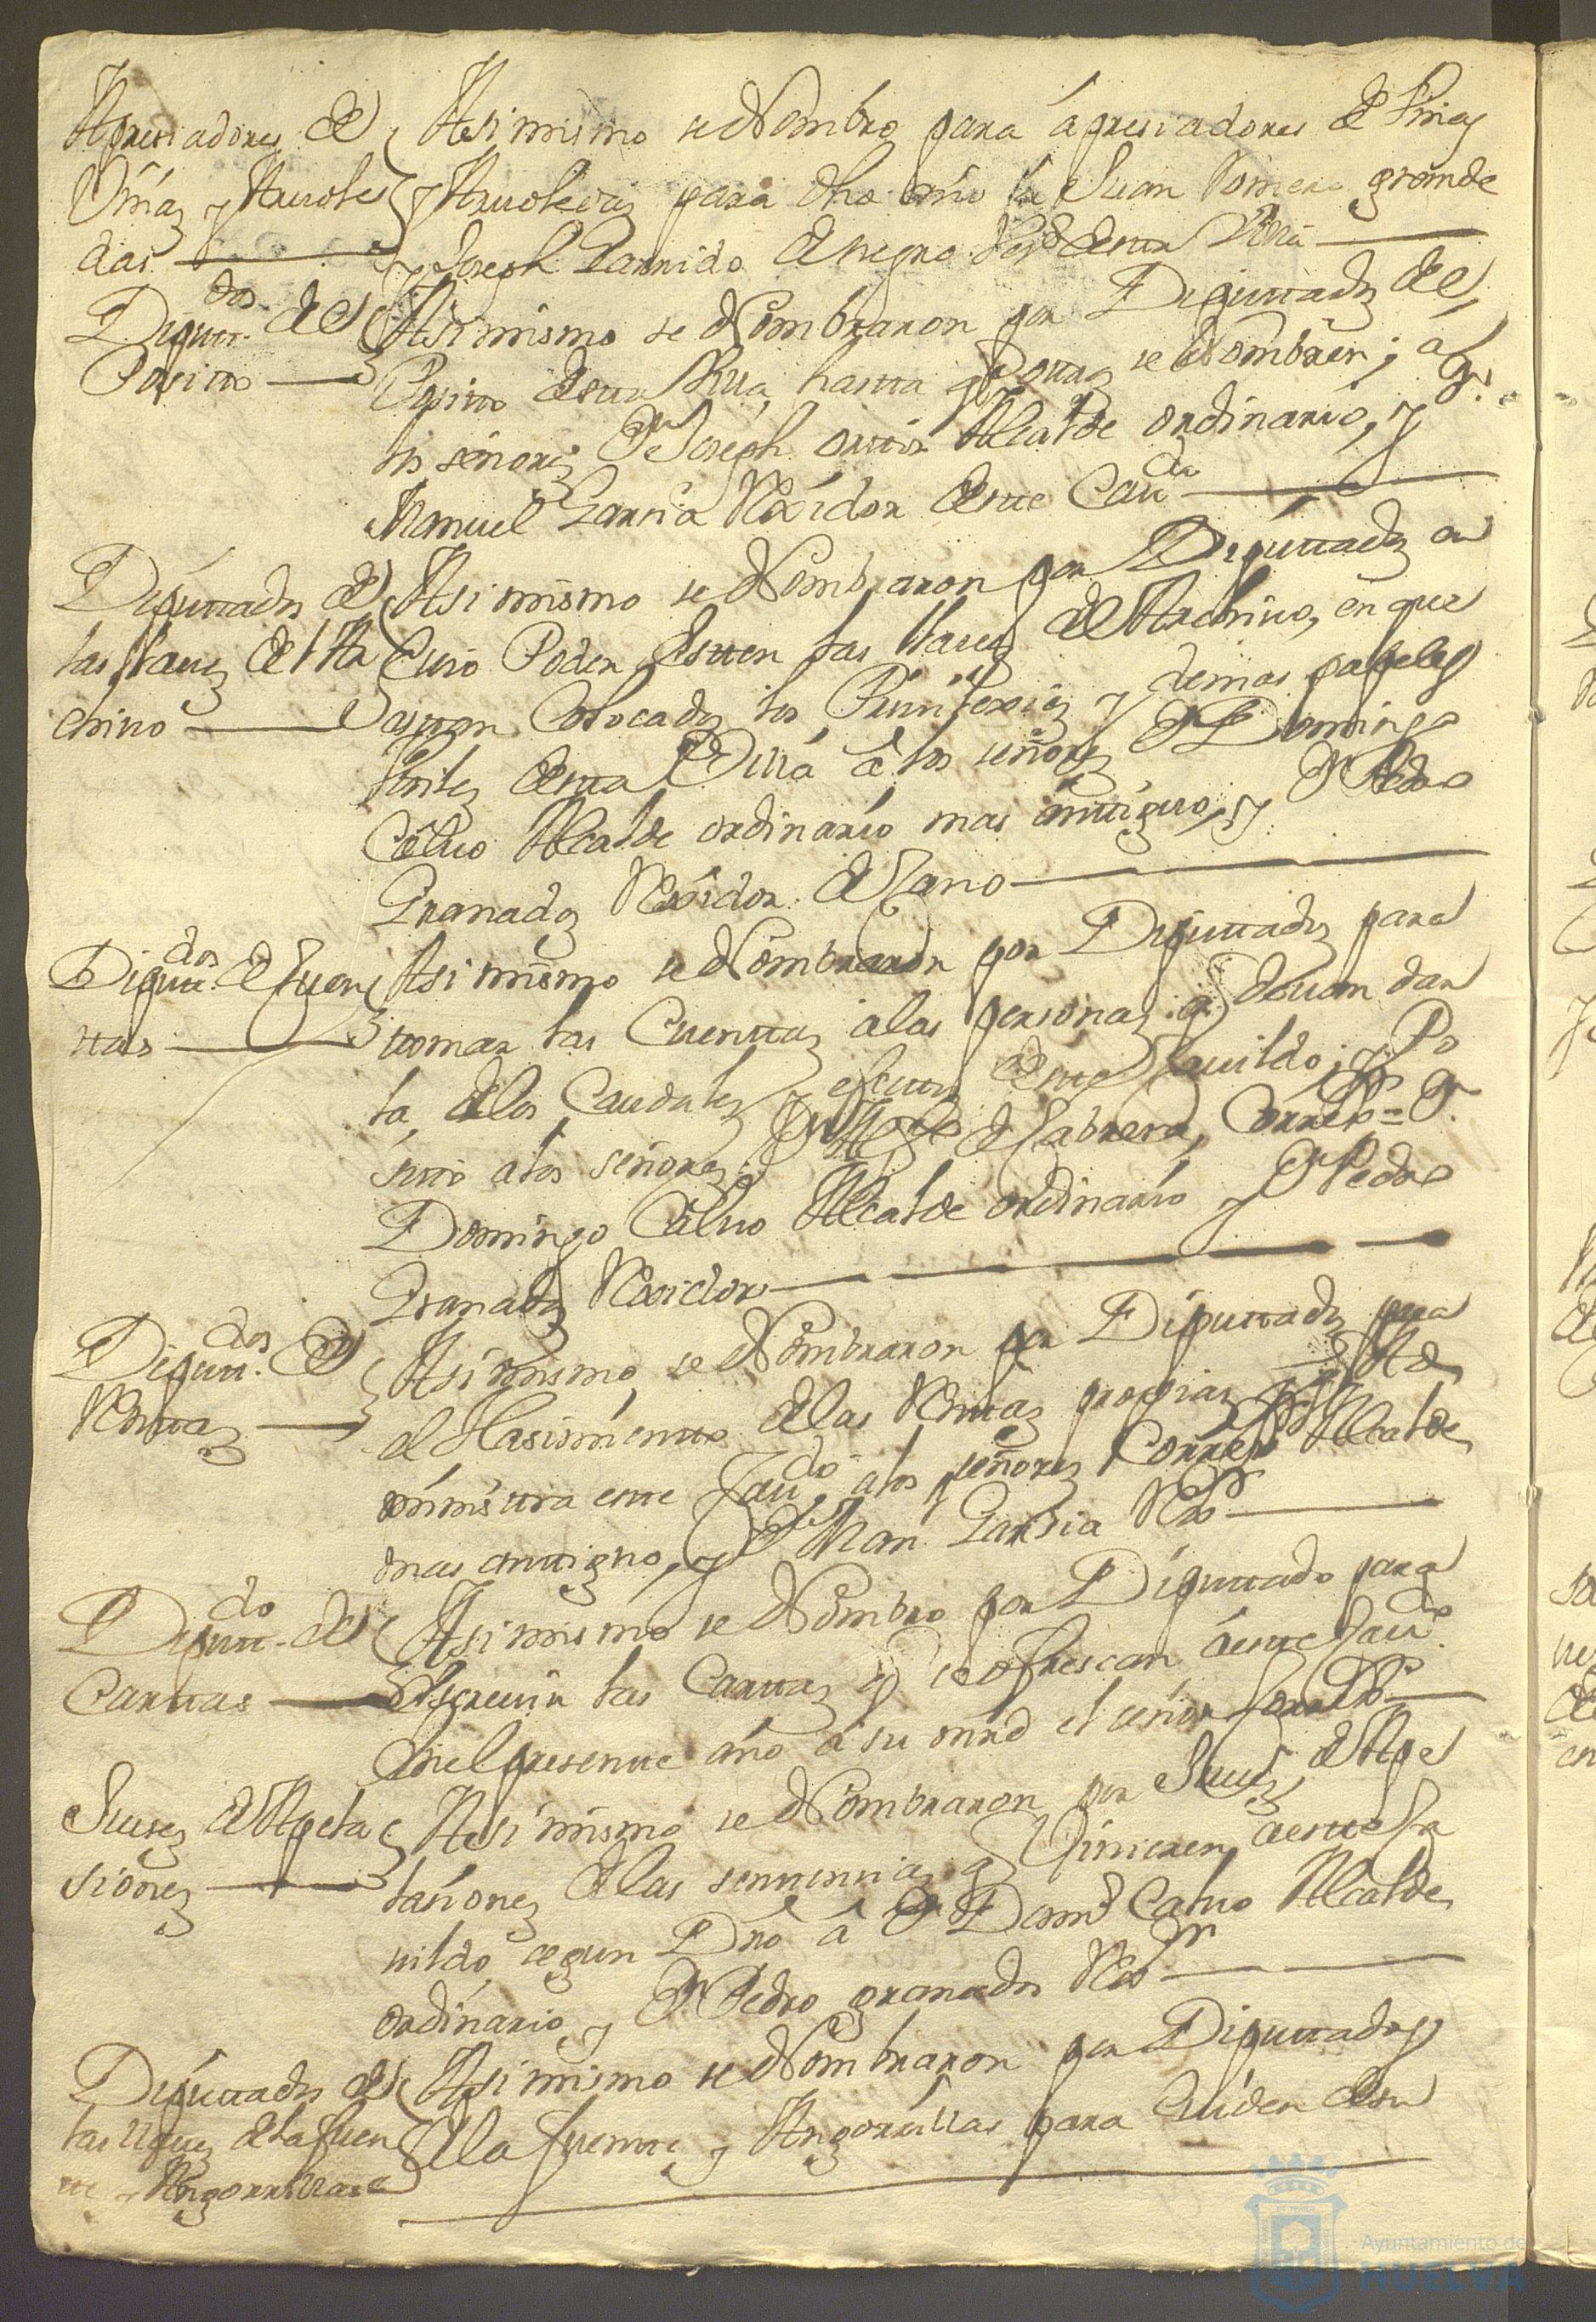 Apresiadores de
Viñas y Arvole
das
Asi mismo se Nombro para apresiadores de Viñas
y Arvoledas para dho año a Juan Romero grande
y Joseph Garrido de negro Vos. de esta Villa
Diputt.dos de el
Positto
Asi mismo se Nombraron por Diputtados de el
Positto de esta Villa, hasta q otros se Nombren, a
los señores Dn Joseph orttiz Alcalde ordinario, y Dn.
Manuel Garsia Rexidor de este Cav.do
Diputtados de
las llaves del Ar
chivo
Asi mismo se Nombraron por Diputtados en
Cuio Poder esten las llaves del Archivo, en que
estan Colocados los Privilexios y demas papeles
de esta Villa â los señores Dn Domingo
Calvo Alcalde ordinario mas anttiguo, y Dn Pedro
Granados Rexidor Decano
Diputt.dos de Cuen
ttas
Asi mismo se Nombraron por Diputtados para
ttomar las Cuenttas a las personas q devan dar
la, de los Caudales y efecttos de este Cavildo, y Po
sitto a los señores Dn de Cabrera, Correxor = Dn.
Domingo Calvo Alcalde ordinario y Dn Pedro
Granados Rexidor
Diputt.dos de
Renttas
Asi mismo se Nombraron por Diputtados para
el Hasimentto de las Renttas propias q Ad
ministtra este Cav.do a los señores Correxor Alcalde
mas anttiguo, y Dn Man. Garsia Rexor
Diputt.do de
Carttas
Asi mismo se Nombro por Diputtado para
Escrevir las Carttas q se ofrescan a este Cav.do
en el presentte año a su mrd el señor Correxor
Jueses de Apela
siones
Asi mismo se Nombraron por Jueses de Ape
lasiones de las senttensias q Vinieren a este Ca
vildo, segun Dro â Dn Dom.o Calvo Alcalde
ordinario, y Dn Pedro granados Rexor
Diputtados de
las de la fuen
tte y Angorrillas
Asi mismo se Nombraron por Diputtados
de la fuentte, y Angorrillas para Cuiden de su
Ayuntamiento de
HUELVA